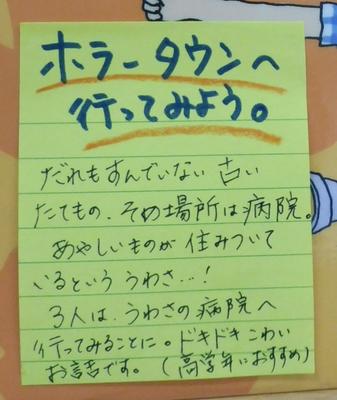 ホラータウンへ
行ってみよう。
だれもすんでいない 古い
たてもの、その場所は病院。
あやしいものが 住みついて
いるという うわさ…！
3人は、うわさの病院へ
行ってみることに。ドキドキ こわい
お話です。(高学年におすすめ)